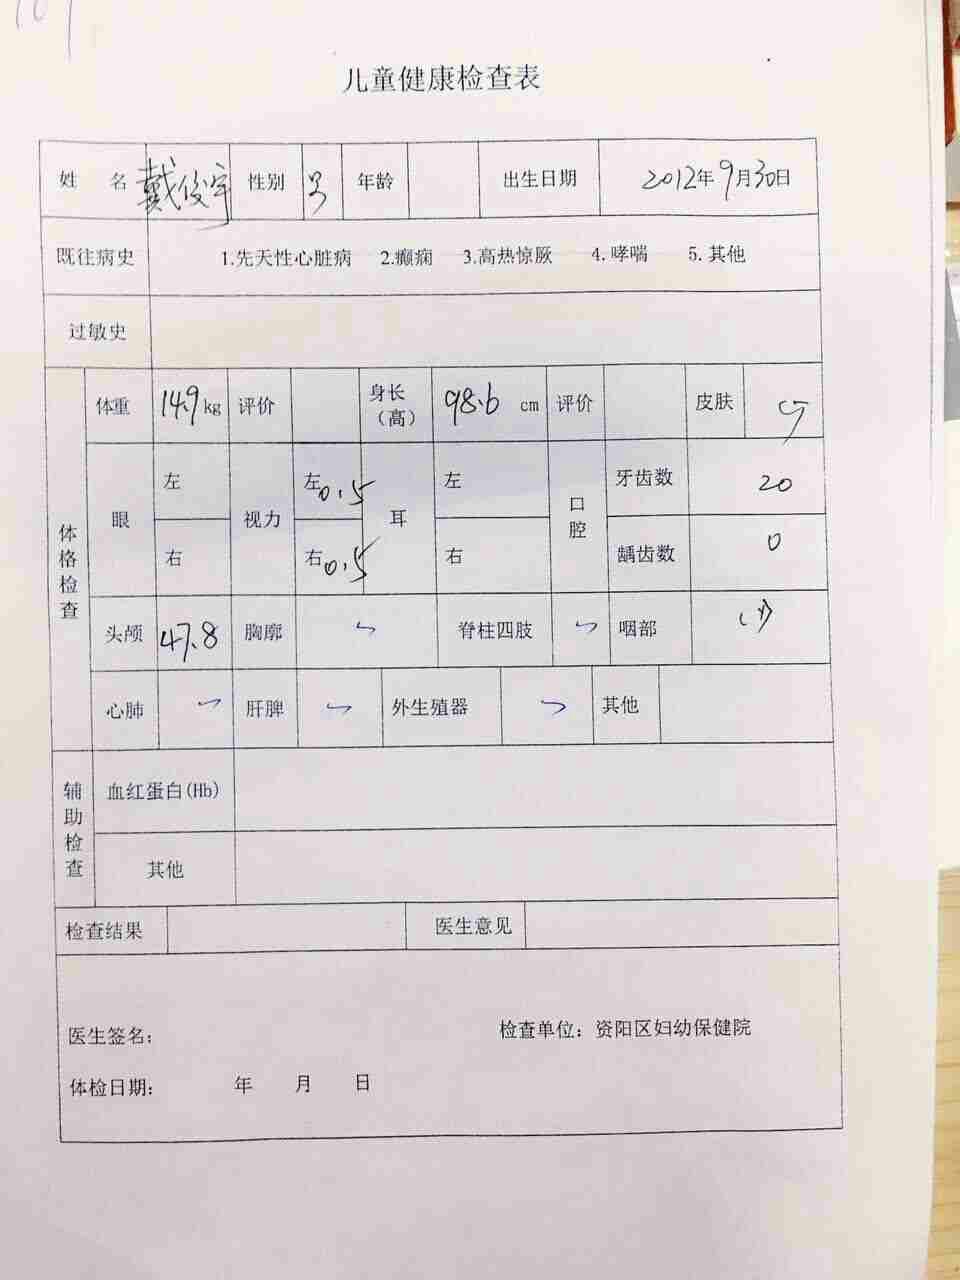 儿童健康检查表
姓 名 戴俊宇 性别 男 年龄 出生日期 2012年9月30日
既往病史 1.先天性心脏病 2.癫痫 3.高热惊厥 4.哮喘 5.其他
过敏史
体格检查
体重 14.9kg 评价 身长（高） 98.6 cm 评价 皮肤
眼 左 视力 左 0.5 耳 左 口腔 牙齿数 20
右 右 0.5 右 龋齿数 0
头颅 47.8 胸廓 脊柱四肢 咽部 (-)
心肺 肝脾 外生殖器 其他
辅助检查
血红蛋白(Hb)
其他
检查结果 医生意见
医生签名： 检查单位：资阳区妇幼保健院
体检日期： 年 月 日